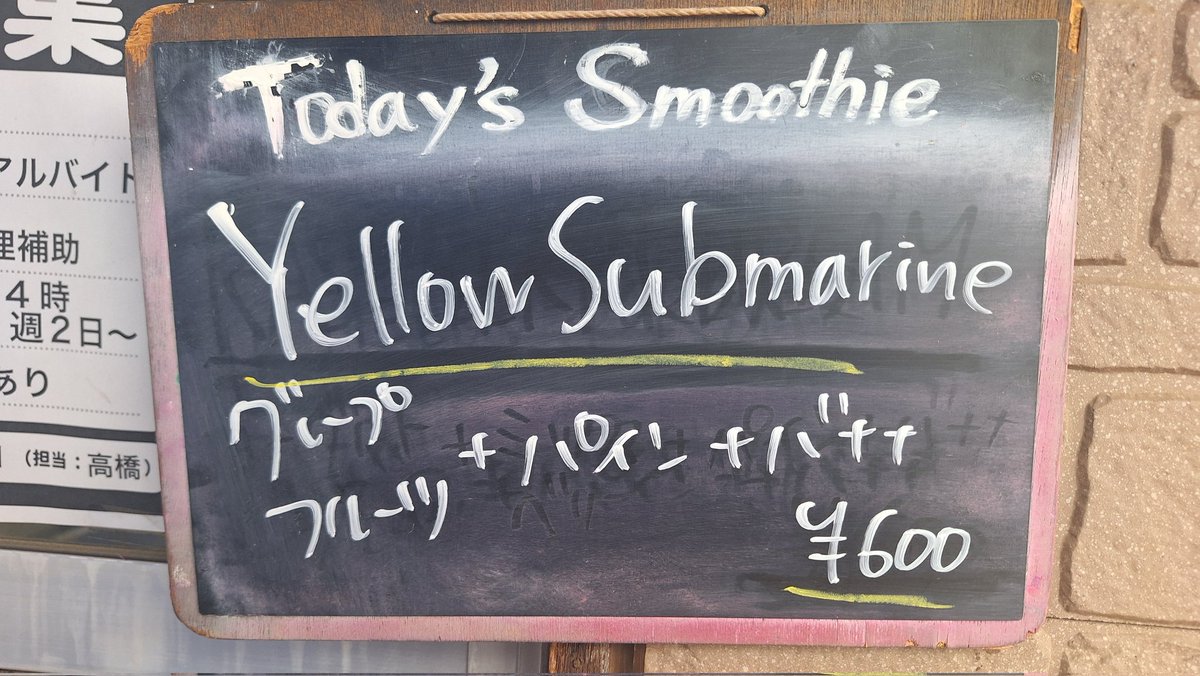 Today's Smoothie
Yellow Submarine
グレープ
フルーツ
+ パイン + バナナ
¥600
集
アルバイト
理補助
4時
週2日～
あり
（担当：高橋）